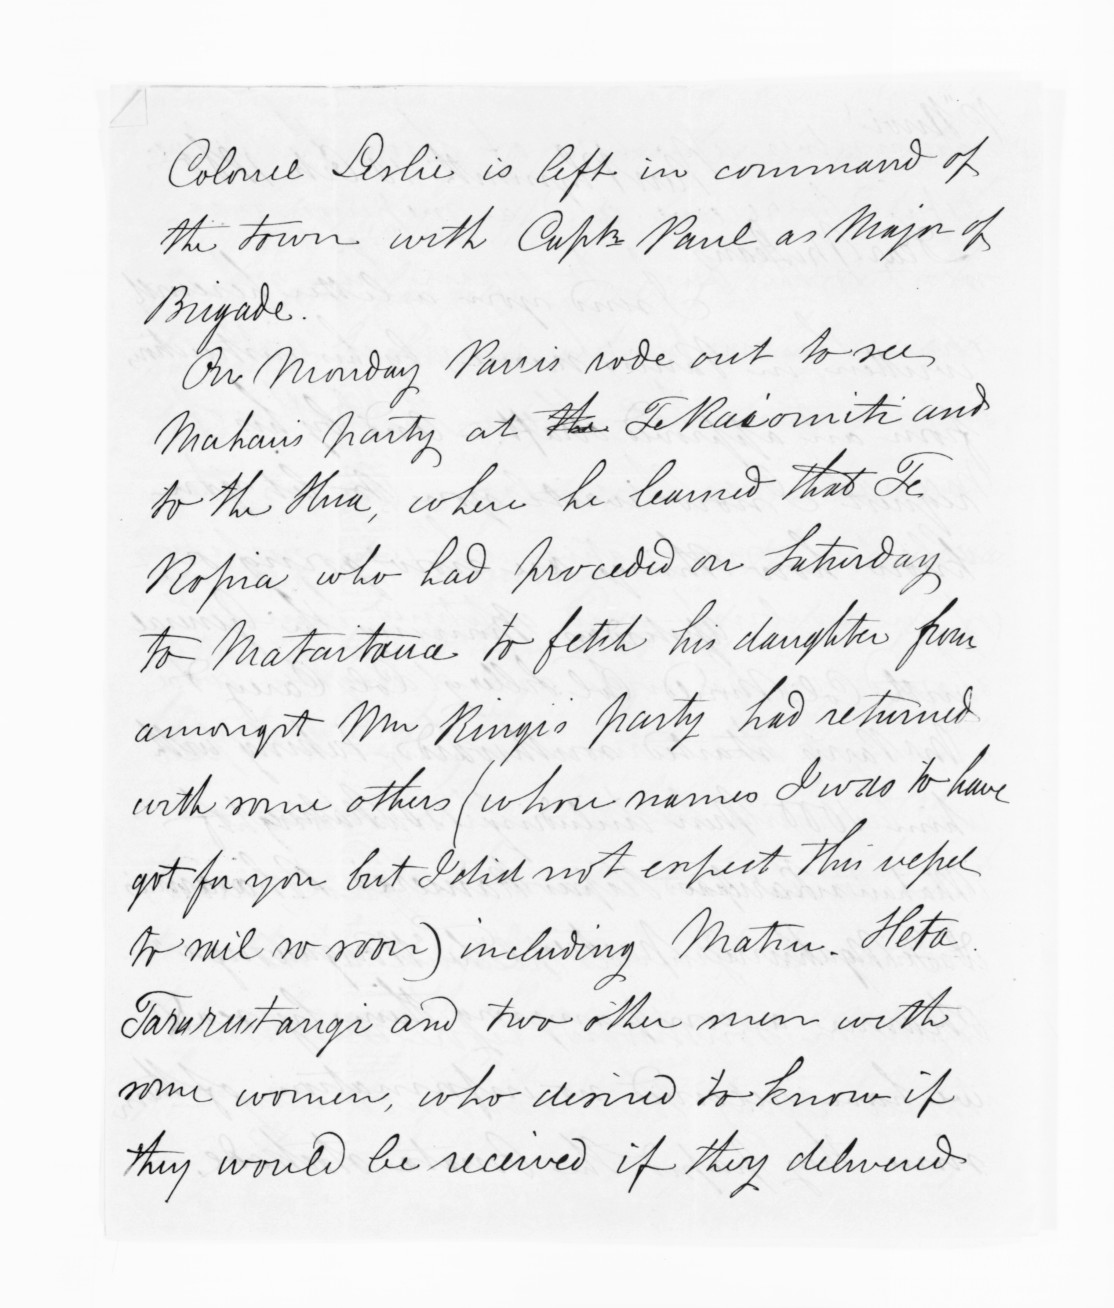 Colonel Leslie is left in command of
the town with Captn Paul as Major of
Brigade.
On Monday Parris rode out to see
Mahaus party at the Te Kaiomiti and
to the Hua, where he learned that Te
Ropiha who had proceded on Saturday
to Mataitawa to fetch his daughter from
amongst Wm Kingis party had returned
with some others (whose names I was to have
got for you but I did not expect this vessel
to sail so soon) including Matiu. Heta.
Tarurutangi and two other men with
some women, who desired to know if
they would be received if they delivered